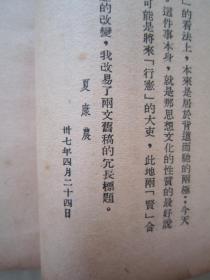 」的看法上，本來是居於背道而馳的兩極：今天
，這件事本身，就是那思想文化的性質的最好說
可能是將來「行憲」的大吏，此地兩「賢」會
的改變，我改易了兩文舊稿的冗長標題。
夏康農
卅七年四月二十四日